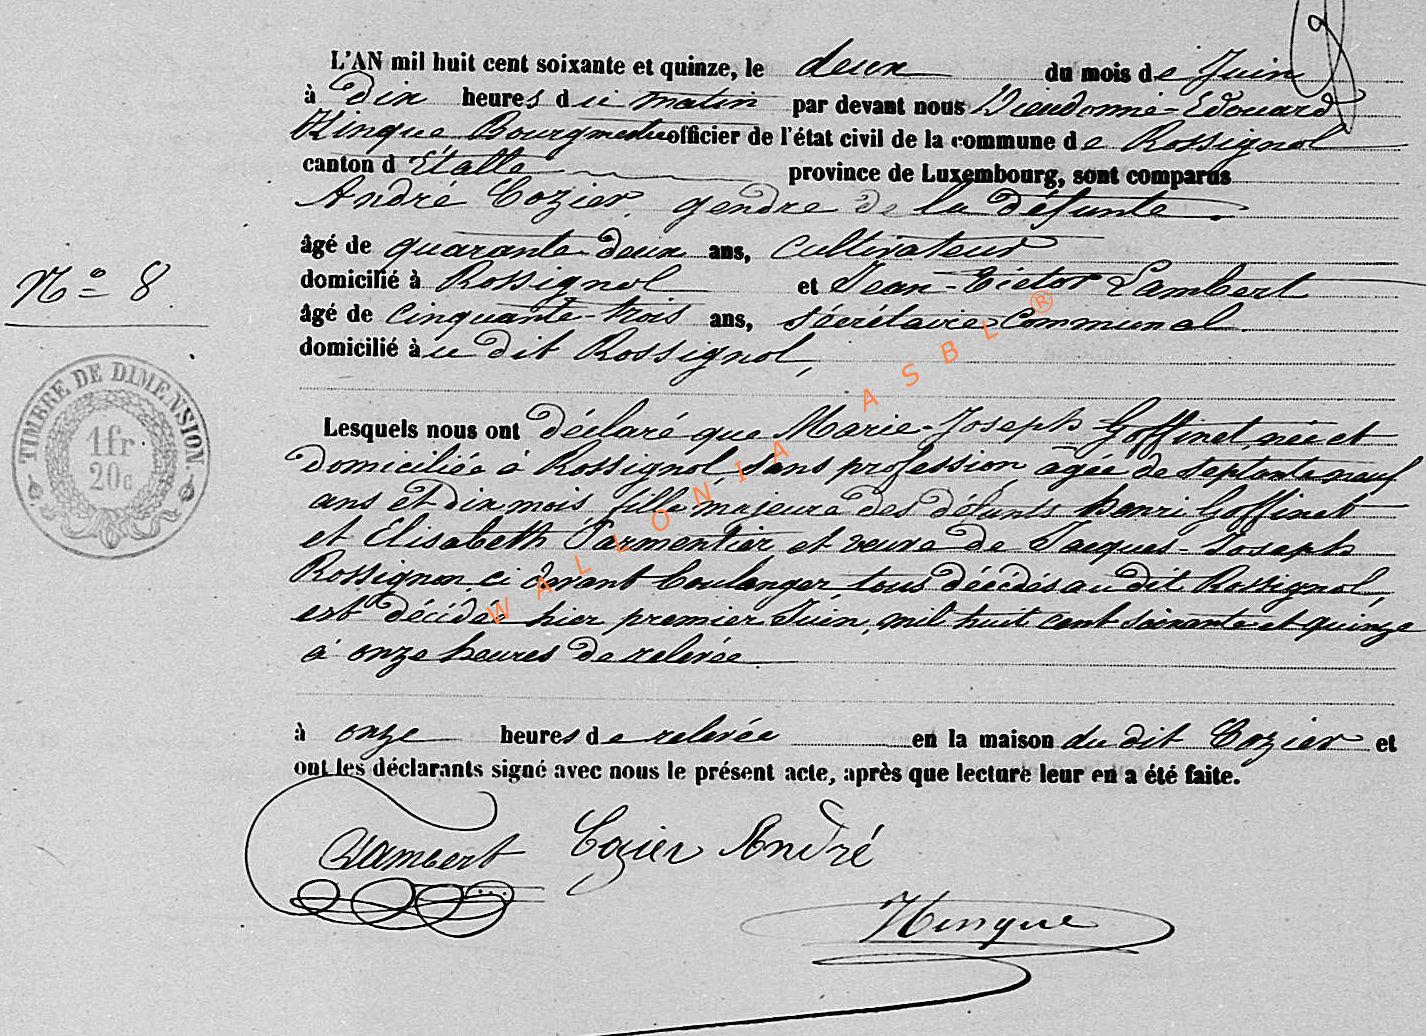 L'AN mil huit cent soixante et quinze, le deux du mois de Juin
à dix heures du matin par devant nous Dieudonné-Edouard
Hinque Bourgmestre officier de l'état civil de la commune de Rossignol
canton d'Etalle province de Luxembourg, sont comparus
André Cozier, gendre de la défunte.
âgé de quarante-deux ans, cultivateur
domicilié à Rossignol et Jean-Victor Lambert
N° 8
âgé de cinquante-trois ans, secrétaire-communal
domicilié à u dit Rossignol,
TIMBRE DE DIMENSION.
1fr
20c
Lesquels nous ont déclaré que Marie-Joseph Goffinet, née et
domiciliée à Rossignol, sans profession âgée de septante neuf
ans et dix mois, fille majeure des défunts Henri Goffinet
et Elisabeth Parmentier et veuve de Jacques-Joseph
Rossignon, ci avant boulanger, tous décédés au dit Rossignol,
est décédée hier premier Juin, mil huit cent soixante et quinze
à onze heures de relevée
à onze heures de relevée en la maison du dit Cozier et
ont les déclarants signé avec nous le présent acte, après que lecture leur en a été faite.
Lambert Cozier André
Hinque
WALLONIA ASBL ®